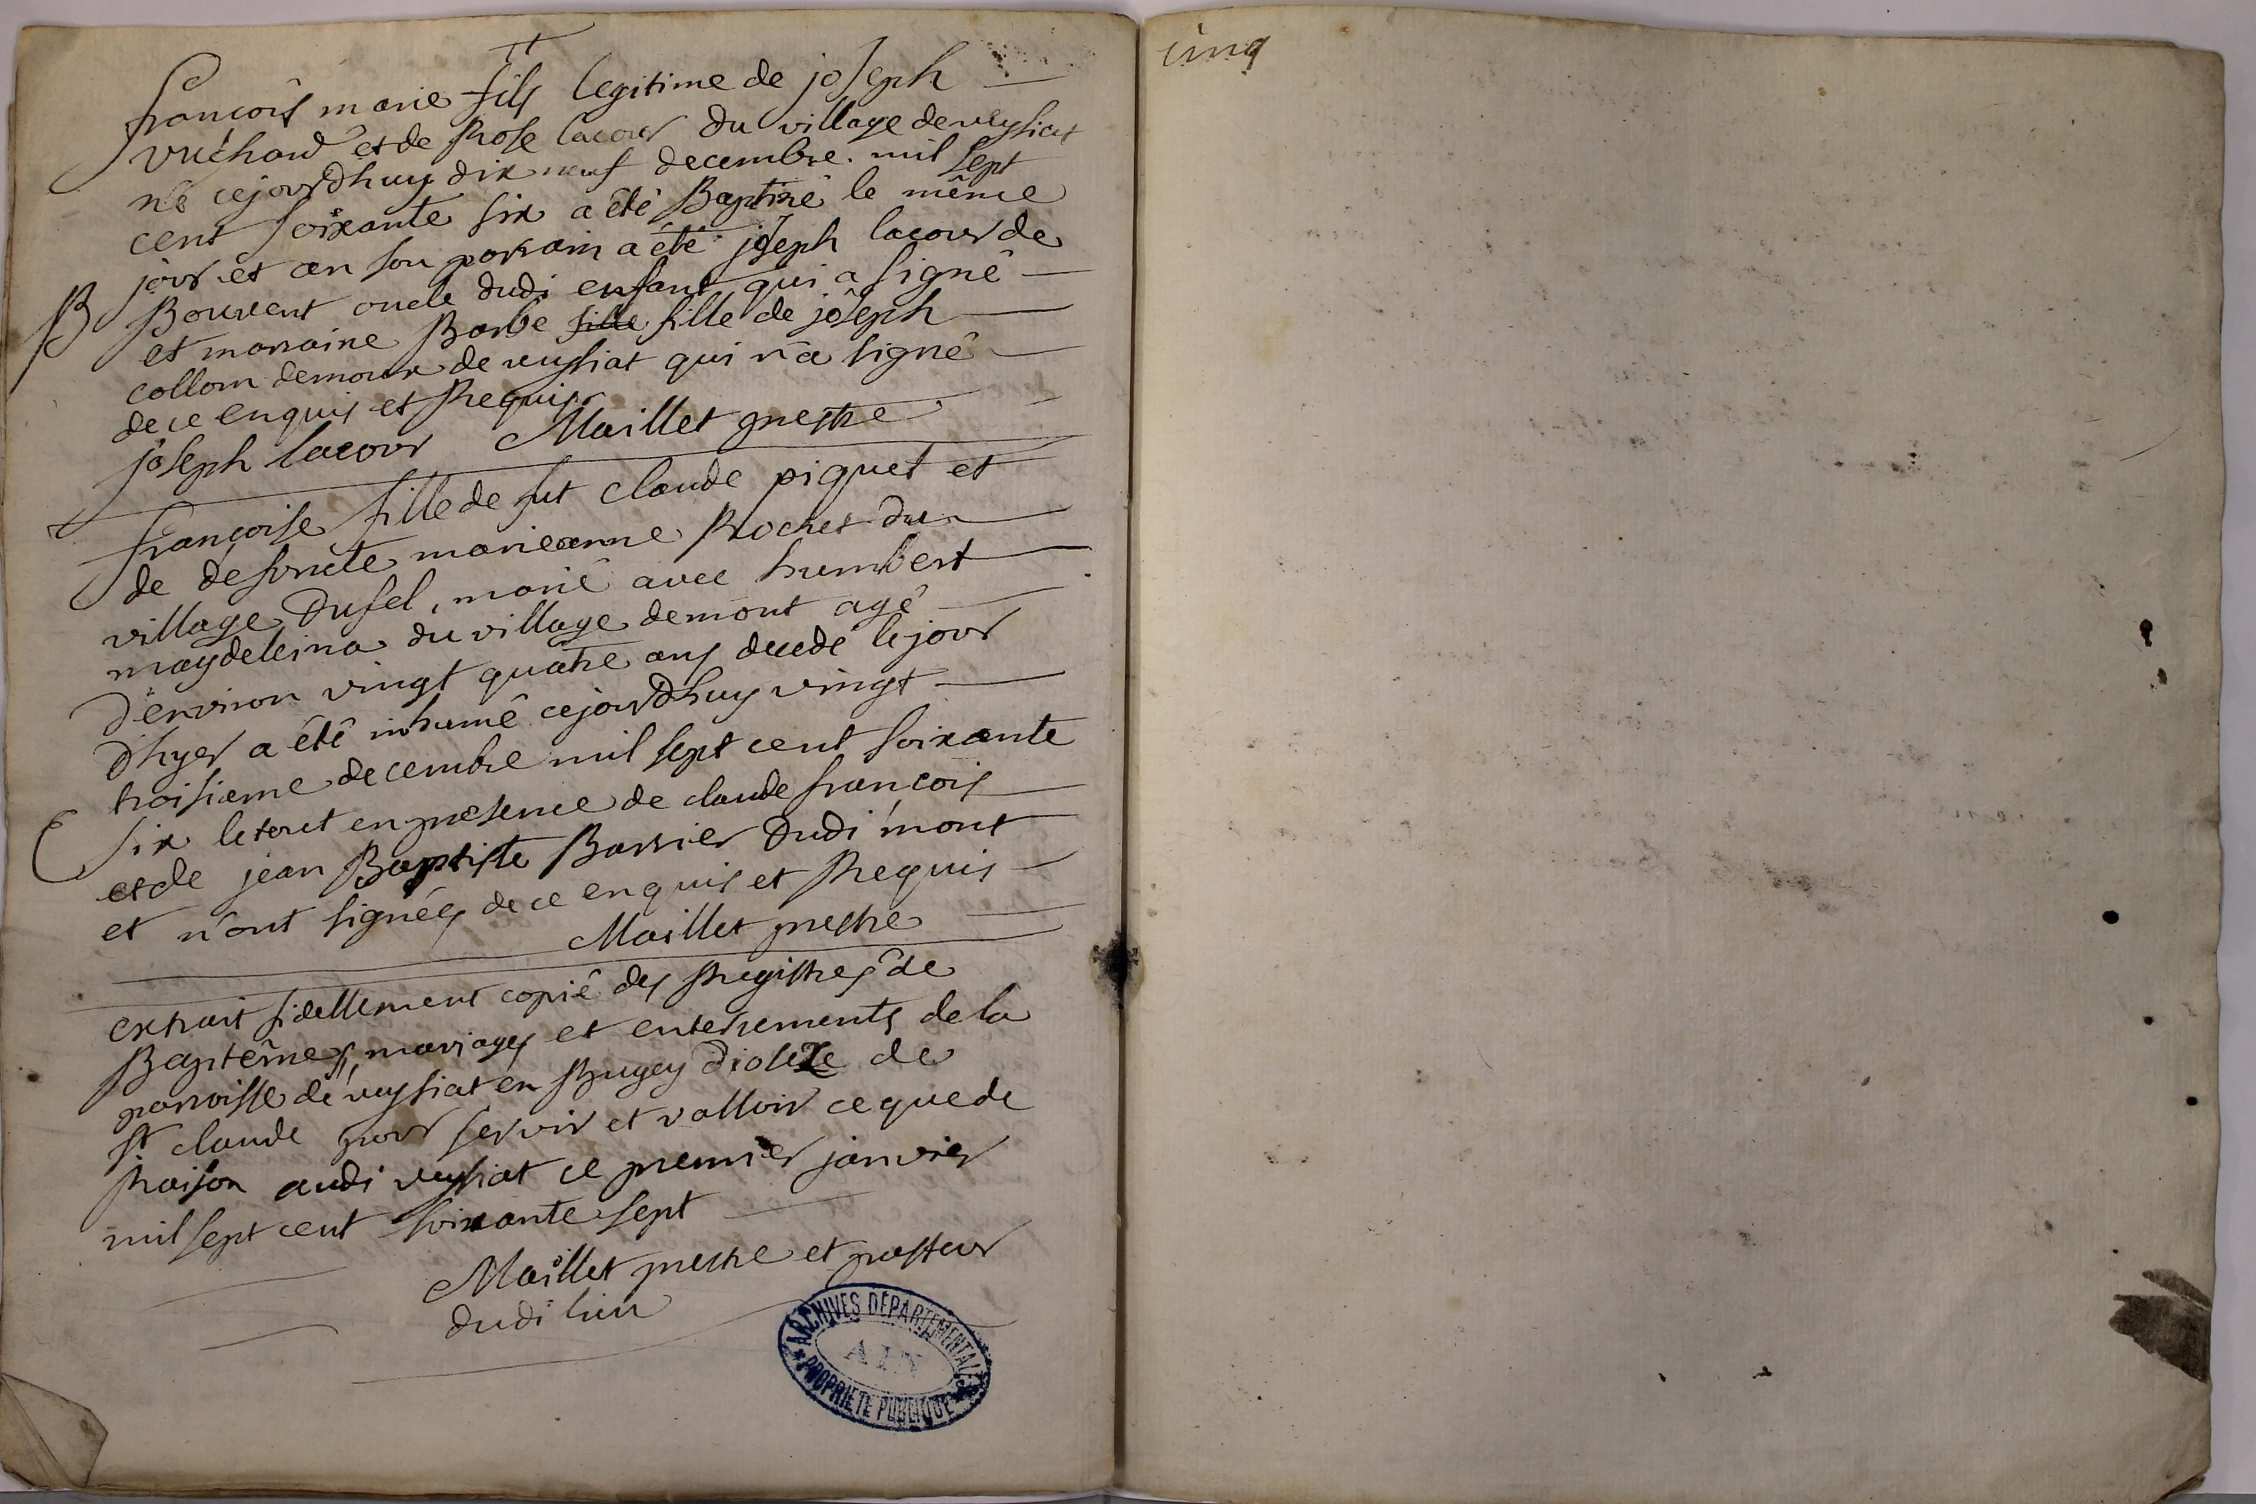 françois marie fils legitime de joseph
vuchard et de Rose lacour du village de veysiat
né cejourdhuy dix neuf decembre mil sept
cent soixante six a été Baptizé le même
jour et an son parrain a été joseph lacour de
B
Bouvent oncle dudi enfant qui a signé
et marraine Barbe fille fille de joseph
collom demour de veysiat qui n'a signé
de ce enquis et Requis
joseph lacour Maillet prestre
françoise fille de fut claude piquet et
de defuncte marieanne Rochet du
village Dufel, marié avec humbert
maydelleina du village demont agé
d'environ vingt quatre ans decedé le jour
d'hyer a été inhumé cejourdhuy vingt
troisieme decembre mil sept cent soixante
six le tout en présence de claude françois
et de jean Baptiste Barrier dudi mont
et n'ont signées de ce enquis et Requis
Maillet prestre
extrait fidellement copié des Registres de
Baptêmes, mariages et enterrements de la
parroisse de veysiat en Bugey Dioleze de
St. claude pour servir et valloir ce que de
Raison audi veysiat ce premier janvier
mil sept cent soixante sept
Maillet prestre et pasteur
dudi lieu
ARCHIVES DÉPARTEMENTALES
AIN
PROPRIÉTÉ PUBLIQUE
cinq